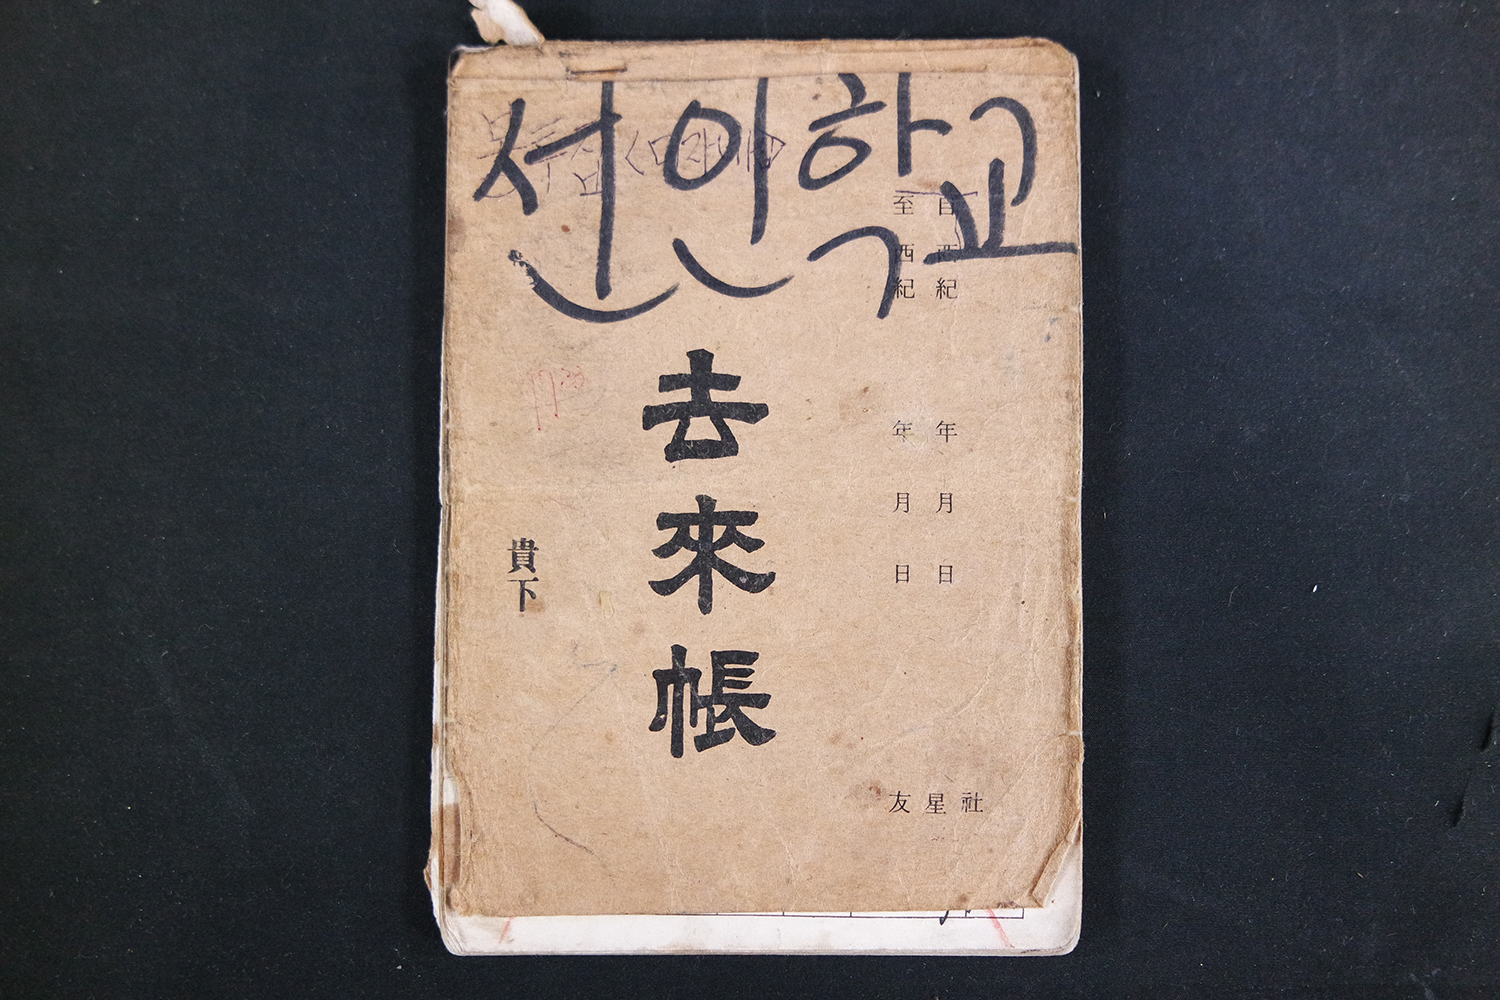 선인학교
自西紀 年 月 日
至西紀 年 月 日
去來帳
貴下
友星社